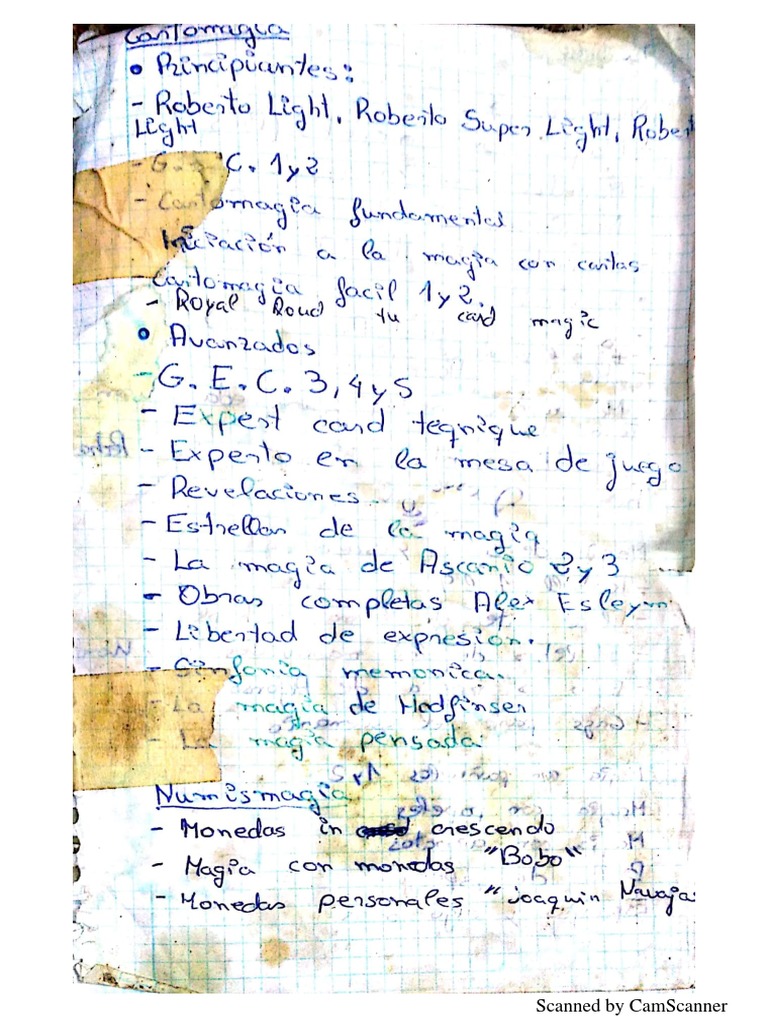 Cartomagia
• Principiantes:
- Roberto Light, Roberto Super Light, Rober
Light
- G. C. 1 y 2
- Cartomagia fundamental
Iniciación a la magia con cartas
Cartomagia facil 1 y 2.
- Royal Roud tu card magic
• Avanzados
- G. E. C. 3, 4 y 5
- Expert card teqnique
- Experto en la mesa de juego
- Revelaciones
- Estrellas de la magia
- La magia de Ascanio 2 y 3
- Obras completas Alex Esleym
- Libertad de expresión.
- Sinfonia memonica.
- La magia de Hodfinser
- La magia pensada
Numismagia
- Monedas in crescendo
- Magia con monedas "Bobo"
- Monedas personales "Joaquin Navaja
Scanned by CamScanner